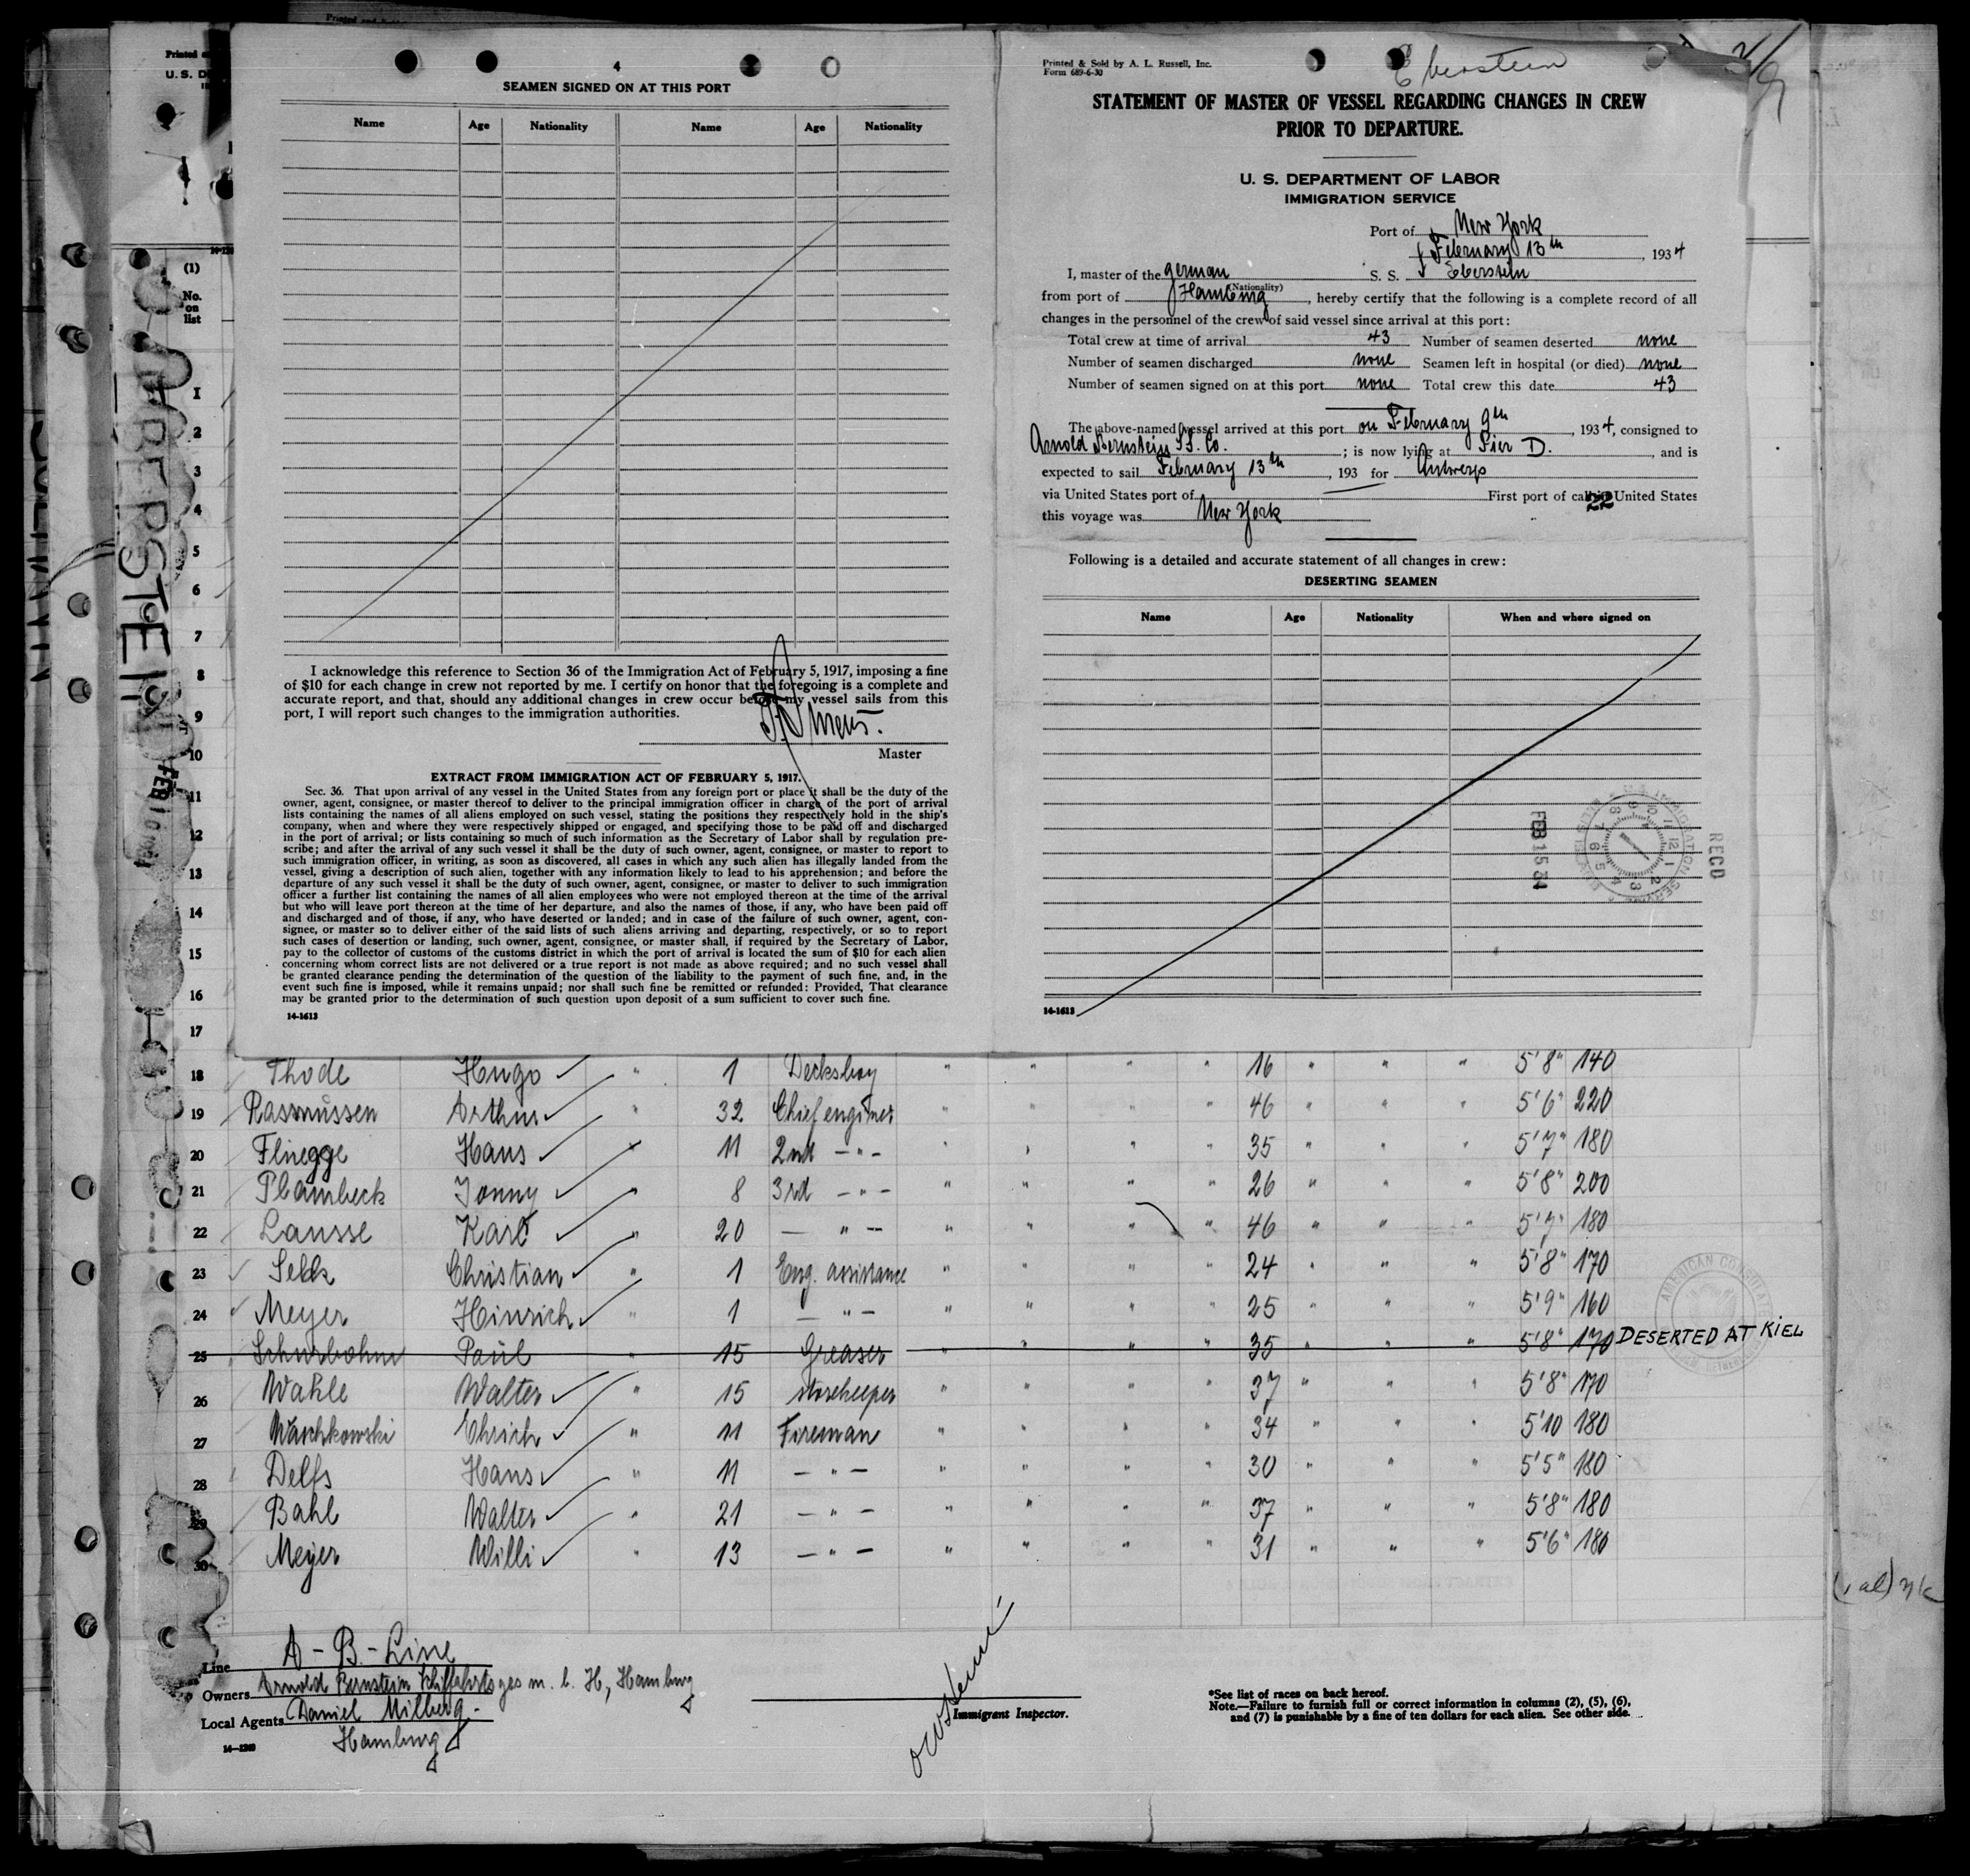 4
SEAMEN SIGNED ON AT THIS PORT
Name Age Nationality Name Age Nationality
I acknowledge this reference to Section 36 of the Immigration Act of February 5, 1917, imposing a fine
of $10 for each change in crew not reported by me. I certify on honor that the foregoing is a complete and
accurate report, and that, should any additional changes in crew occur before my vessel sails from this
port, I will report such changes to the immigration authorities.
Master
EXTRACT FROM IMMIGRATION ACT OF FEBRUARY 5, 1917.
Sec. 36. That upon arrival of any vessel in the United States from any foreign port or place it shall be the duty of the
owner, agent, consignee, or master thereof to deliver to the principal immigration officer in charge of the port of arrival
lists containing the names of all aliens employed on such vessel, stating the positions they respectively hold in the ship's
company, when and where they were respectively shipped or engaged, and specifying those to be paid off and discharged
in the port of arrival; or lists containing so much of such information as the Secretary of Labor shall by regulation pre-
scribe; and after the arrival of any such vessel it shall be the duty of such owner, agent, consignee, or master to report to
such immigration officer, in writing, as soon as discovered, all cases in which any such alien has illegally landed from the
vessel, giving a description of such alien, together with any information likely to lead to his apprehension; and before the
departure of any such vessel it shall be the duty of such owner, agent, consignee, or master to deliver to such immigration
officer a further list containing the names of all alien employees who were not employed thereon at the time of the arrival
but who will leave port thereon at the time of her departure, and also the names of those, if any, who have been paid off
and discharged and of those, if any, who have deserted or landed; and in case of the failure of such owner, agent, con-
signee, or master so to deliver either of the said lists of such aliens arriving and departing, respectively, or so to report
such cases of desertion or landing, such owner, agent, consignee, or master shall, if required by the Secretary of Labor,
pay to the collector of customs of the customs district in which the port of arrival is located the sum of $10 for each alien
concerning whom correct lists are not delivered or a true report is not made as above required; and no such vessel shall
be granted clearance pending the determination of the question of the liability to the payment of such fine, and, in the
event such fine is imposed, while it remains unpaid; nor shall such fine be remitted or refunded: Provided, That clearance
may be granted prior to the determination of such question upon deposit of a sum sufficient to cover such fine.
14-1613
Printed & Sold by A. L. Russell, Inc.
Form 689-6-30
Eberstein
STATEMENT OF MASTER OF VESSEL REGARDING CHANGES IN CREW
PRIOR TO DEPARTURE.
U. S. DEPARTMENT OF LABOR
IMMIGRATION SERVICE
Port of New York
February 13th, 1934
I, master of the german S. S. Eberstein
(Nationality)
from port of Hamburg, hereby certify that the following is a complete record of all
changes in the personnel of the crew of said vessel since arrival at this port:
Total crew at time of arrival 43 Number of seamen deserted none
Number of seamen discharged none Seamen left in hospital (or died) none
Number of seamen signed on at this port none Total crew this date 43
The above-named vessel arrived at this port on February 9th, 1934, consigned to
Arnold Bernstein S.S. Co.; is now lying at Pier D., and is
expected to sail February 13th, 193 for Antwerp
via United States port of First port of call in United States
22
this voyage was New York
Following is a detailed and accurate statement of all changes in crew:
DESERTING SEAMEN
Name Age Nationality When and where signed on
FEB 15 34
RECD
14-1613
(1)
No.
on
list
1
2
3
4
5
6
7
8
9
10
11
12
13
14
15
16
17
EBERSTEIN
18 Thode Hugo " 1 Decksboy " " " " 16 " " " 5'8" 140
19 Rasmussen Arthur " 32 Chief engineer " " " " 46 " " " 5'6" 220
20 Fluegge Hans " 11 2nd -"- " " " " 35 " " " 5'7" 180
21 Plambeck Jonny " 8 3rd -"- " " " " 26 " " " 5'8" 200
22 Lausse Karl " 20 -"- " " " " 46 " " " 5'7" 180
23 Selk Christian " 1 Eng. assistance " " " " 24 " " " 5'8" 170
24 Meyer Hinrich " 1 -"- " " " " 25 " " " 5'9" 160
25 Paul " 15 Greaser " " " " 35 " " " 5'8" 170 DESERTED AT KIEL
26 Wahle Walter " 15 Storekeeper " " " " 37 " " " 5'8" 170
27 Waschkowski Ehrich " 11 Fireman " " " " 34 " " " 5'10 180
28 Delfs Hans " 11 -"- " " " " 30 " " " 5'5" 180
29 Bahl Walter " 21 -"- " " " " 37 " " " 5'8" 180
30 Meyer Willi " 13 -"- " " " " 31 " " " 5'6" 180
Line A-B-Line
Owners Arnold Bernstein Schiffahrtsges m. b. H, Hamburg
Local Agents Daniel Milberg.
Hamburg
Immigrant Inspector.
*See list of races on back hereof.
Note.—Failure to furnish full or correct information in columns (2), (5), (6),
and (7) is punishable by a fine of ten dollars for each alien. See other side.